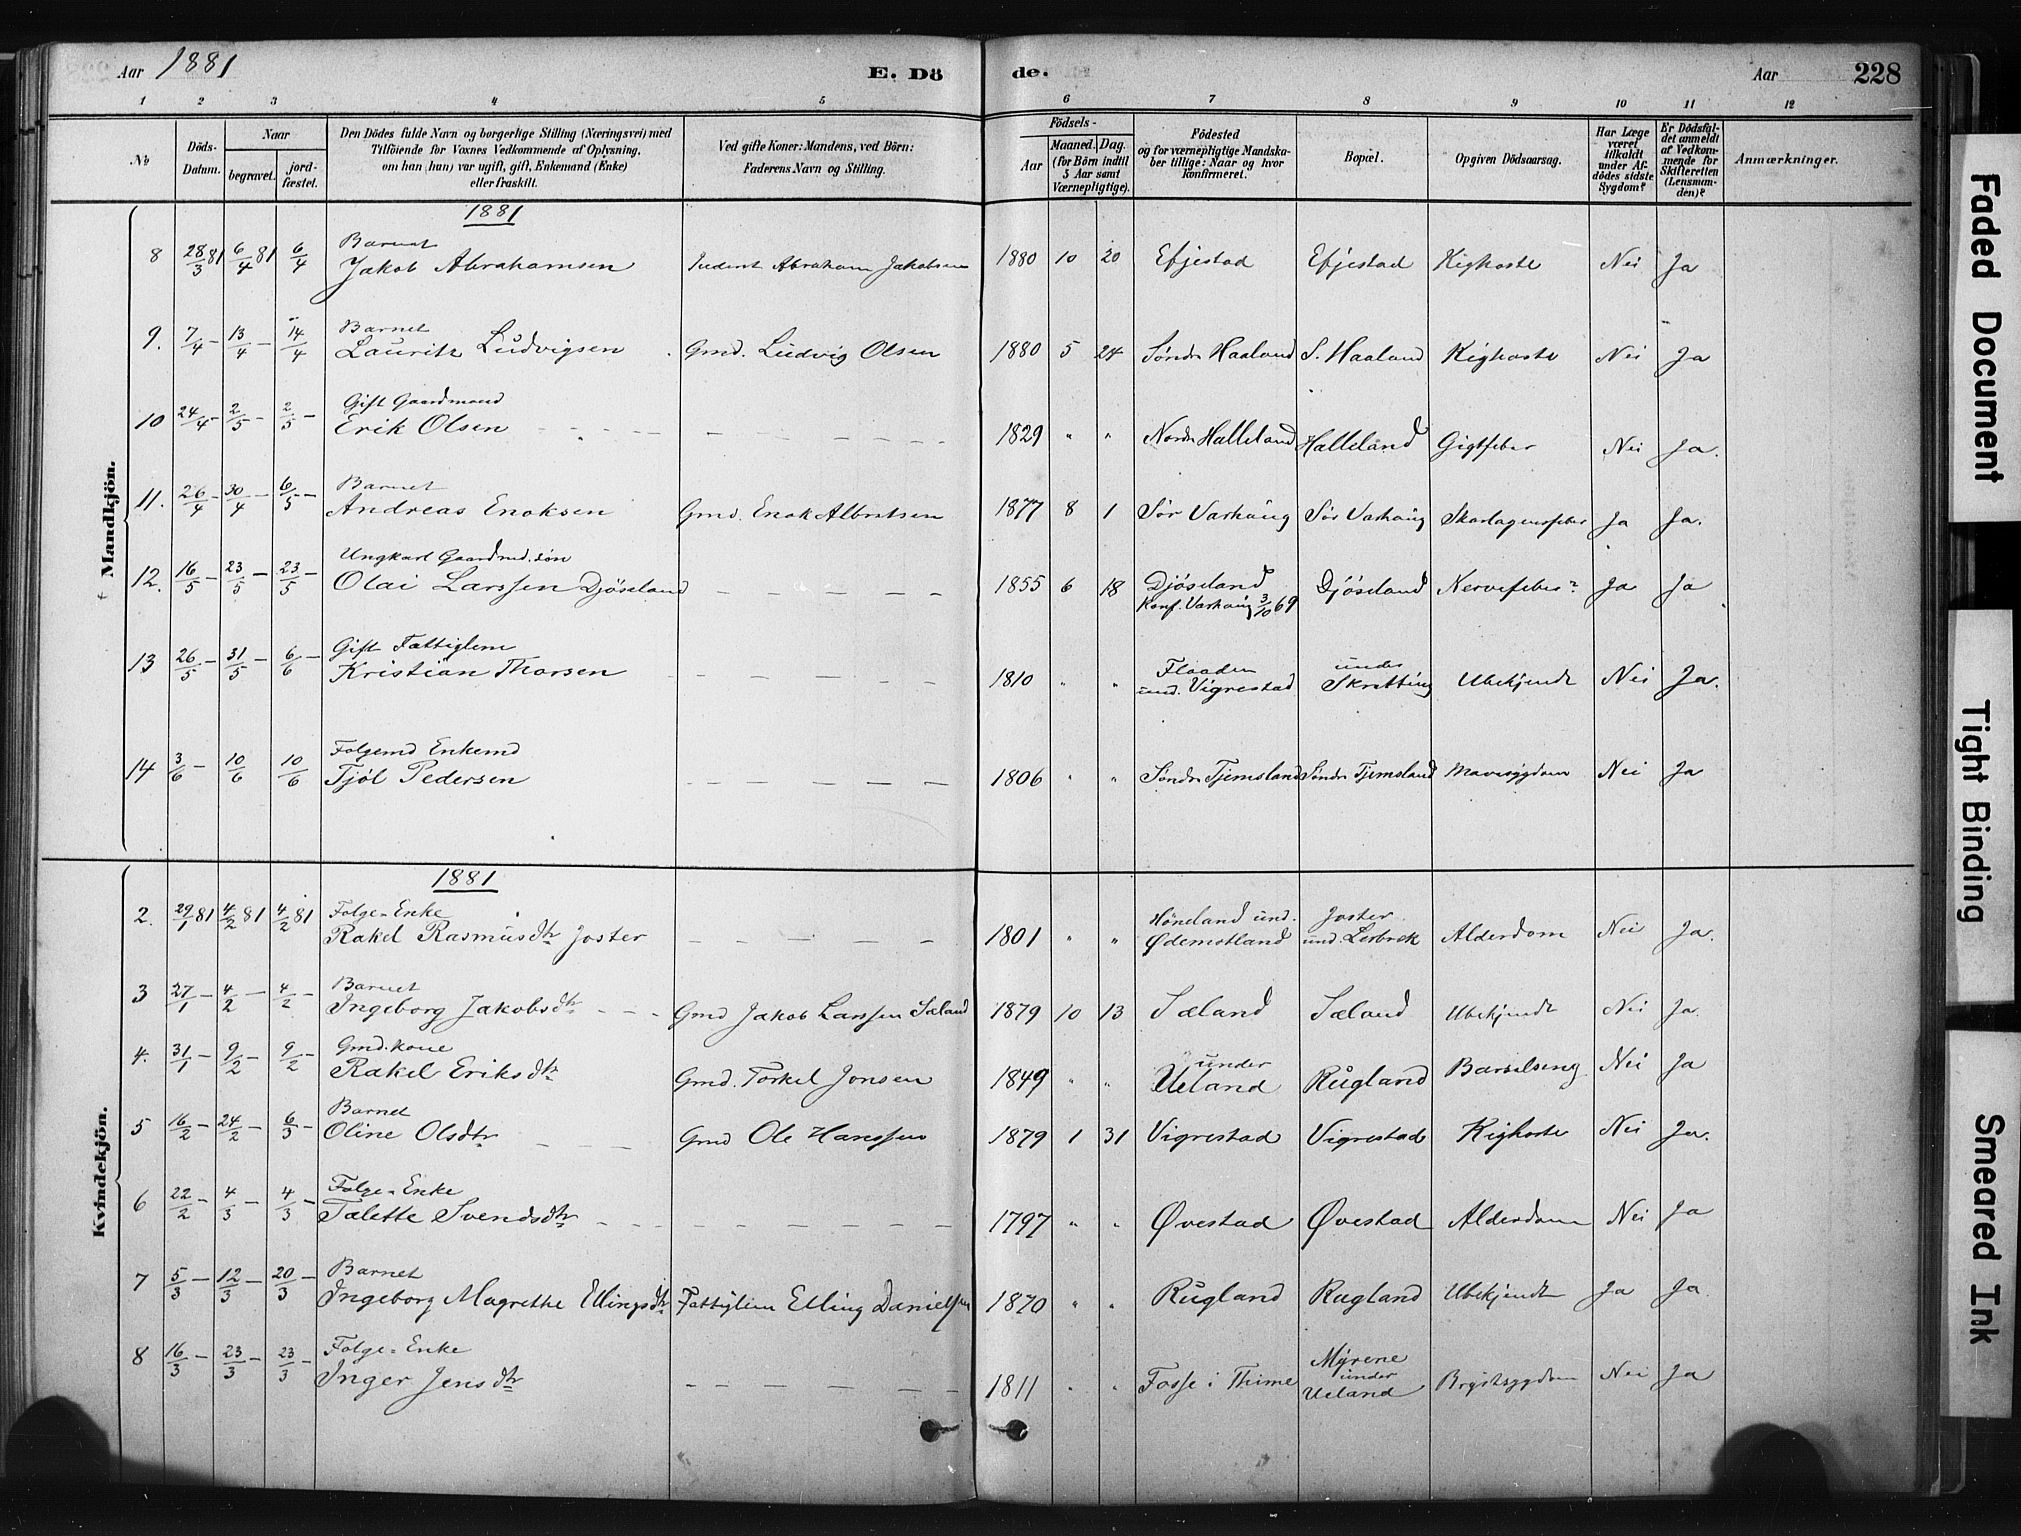 Aar 1881 E. Dö de. Aar 228
1 2 3 4 5 6 7 8 9 10 11 12
No
Döds-
Datum.
Naar
begravet.
jord-
fæstet.
Den Dödes fulde Navn og borgerlige Stilling (Næringsvei) med
Tilföiende for Voxnes Vedkommende af Oplysning,
om han (hun) var ugift, gift, Enkemand (Enke)
eller fraskilt.
Ved gifte Koner: Mandens, ved Börn:
Faderens Navn og Stilling.
Födsels-
Aar
Maaned. Dag.
(for Börn indtil
5 Aar samt
Værnepligtige).
Födested
og for værnepligtige Mandska-
ber tillige: Naar og hvor
konfirmeret.
Bopæl.
Opgiven Dödsaarsag.
Har Læge
været
tilkaldt
under Af-
dödes sidste
Sygdom?
Er Dödsfal-
det anmeldt
af Vedkom-
mende for
Skifteretten
(Lensman-
den)?
Anmærkninger.
Mandkjön.
1881
Barnet
8 28/3 81 6/4 81 6/4 Jakob Abrahamsen Inderst Abraham Jakobsen 1880 10 20 Efjestad Efjestad Kighoste Nei Ja
Barnet
9. 7/4 – 13/4 – 14/4 Lauritz Ludvigsen Gmd. Ludvig Olsen 1880 5 24 Söndr Haaland S. Haaland Kighoste Nei Ja
Gift Gaardmand
10 24/4 – 2/5 – 2/5 – Erik Olsen 1829 " " Nordr Halleland Halleland Gigtfeber Nei Ja.
Barnet
11. 26/4 – 30/4 – 6/5 – Andreas Enoksen Gmd. Enok Albretsen 1877 8 1 Sör Varhaug Sör Varhaug Skarlagensfeber Ja Ja.
Ungkarl Gaardmd. sön
12. 16/5 – 23/5 – 23/5 – Olai Larssen Djöseland 1855 6 18 Djöseland Djöseland Nervefeber? Ja Ja
Konf. Varhaug 3/10 69
Gift Fattiglem
13 26/5 – 31/5 – 6/6 – Kristian Thorsen 1810 " " Floaden und. Vigrestad under Skretting Ubekjendt Nei Ja.
Folgemd Enkemd
14 3/6 – 10/6 10/6 Tjöl Pedersen 1806 " " Söndr Tjemsland Söndr Tjemsland Mavesygdom Nei Ja
Kvindekjön.
1881
Folge-Enke
2. 29/1 81 4/2 81 4/2 81 Rakel Rasmusdtr Joster 1801 " " Höneland und. Ødemotland Joster und. Lerbrek Alderdom Nei Ja.
Barnet
3 27/1 – 4/2 – 4/2 – Ingeborg Jakobsdtr Gmd Jakob Larssen Sæland 1879 10 13 Sæland Sæland Ubekjendt Nei Ja.
Gmd. kone
4. 31/1 – 9/2 – 9/2 – Rakel Eriksdtr Gmd. Torkel Jonsen 1849 " " under Ueland Rugland Barselseng Nei Ja
Barnet
5 16/2 – 24/2 – 6/3 – Oline Olsdtr Gmd Ole Hanssen 1879 1 31 Vigrestad Vigrestad Kighoste Nei Ja.
Folge-Enke
6 22/2 – 4/3 – 4/3 – Talette Svendsdtr 1797 " " Øvestad Øvestad Alderdom Nei Ja
Barnet
7 5/3 – 12/3 – 20/3 – Ingeborg Magrethe Ellingsdtr Fattiglem Elling Danielsen 1870 " " Rugland Rugland Ubekjendt Ja Ja
Folge-Enke
8 16/3 – 23/3 – 23/3 – Inger Jensdtr 1811 " " Fosse i Thime Myrene under Ueland Brystsygdom Nei Ja
Faded Document
Tight Binding
Smeared Ink